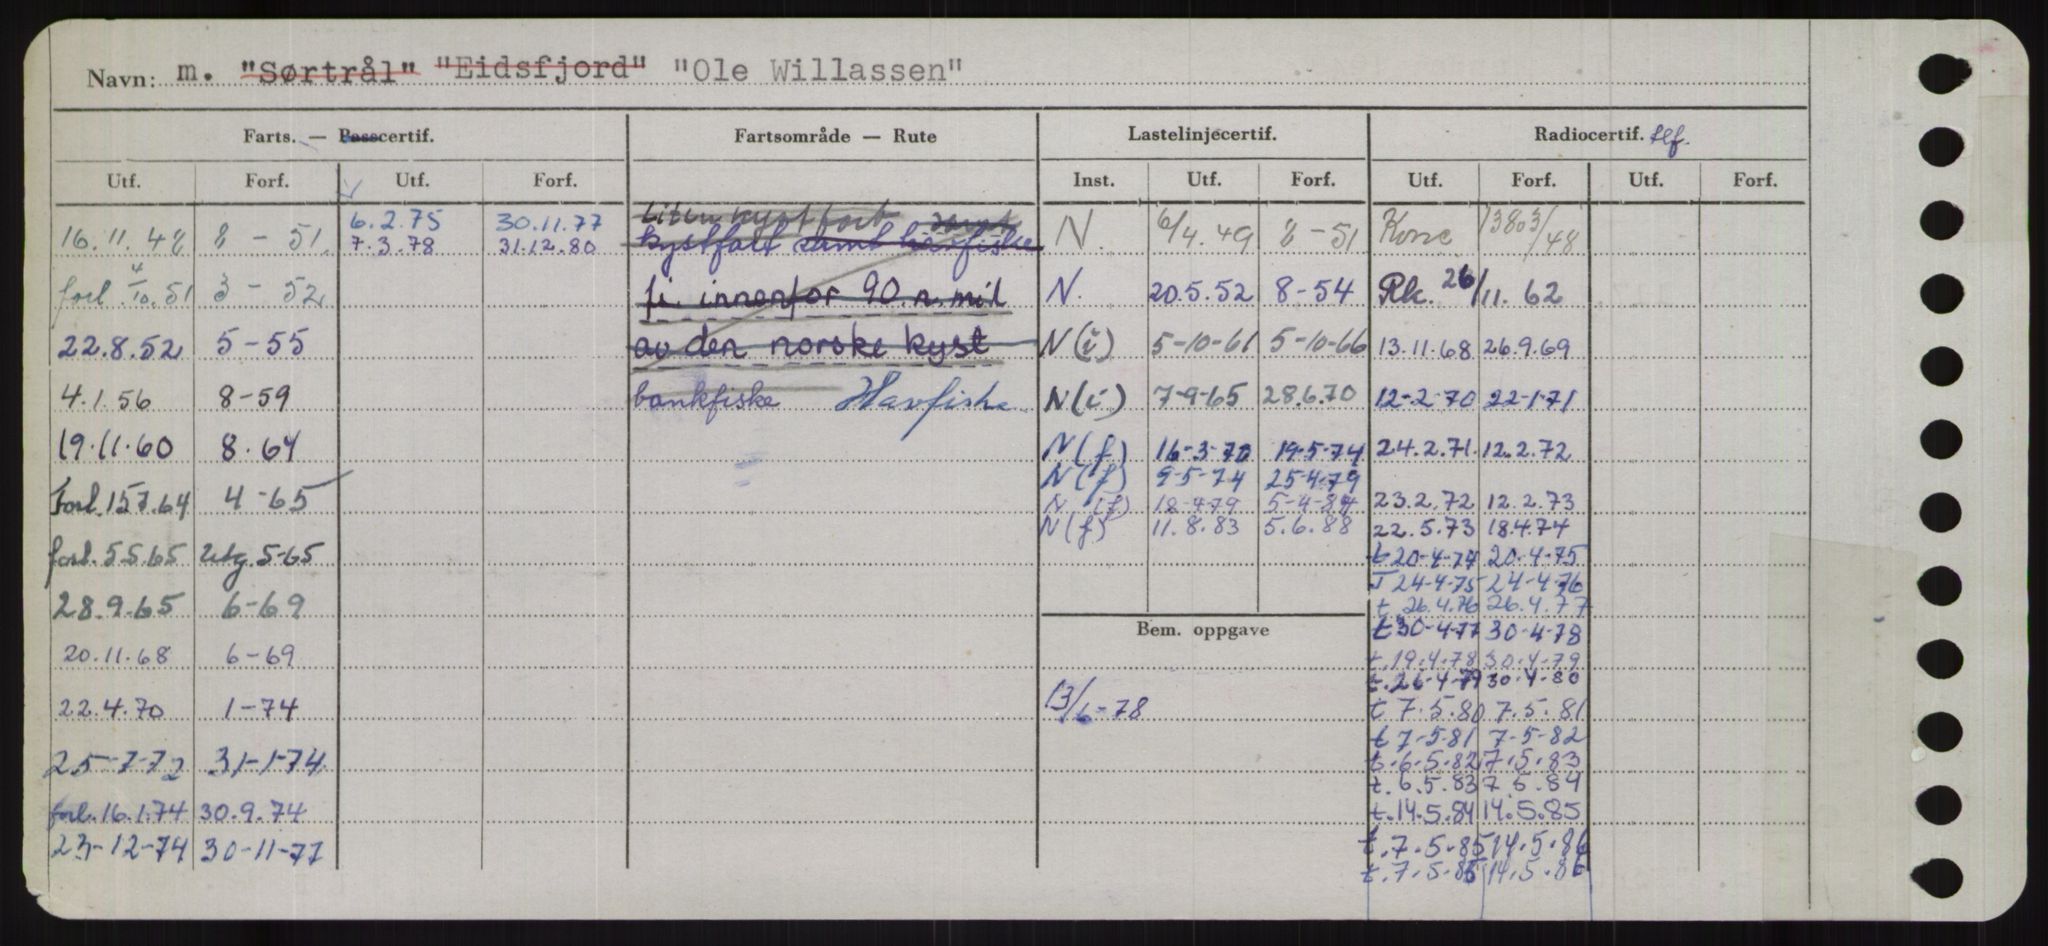 Navn: m. "Sørtrål" "Eidsfjord" "Ole Willassen"
Farts. — Passcertif. Fartsområde — Rute Lastelinjecertif. Radiocertif. tlf.
Utf. Forf. Utf. Forf. Inst. Utf. Forf. Utf. Forf. Utf. Forf.
16.11.48 8 - 51. 6.2.75 30.11.77 Liten kystfart samt N. 6/4.49 8 - 51 Konc 13803/48
7.3.78 31.12.80 kystfart samt havfiske
forl. 4/10.51 3 - 52 fi. innenfor 90 n. mil N. 20.5.52 8-54 Rk. 26/11.62
22.8.52 5-55 av den norske kyst N(i) 5-10-61 5-10-66 13.11.68 26.9.69
4.1.56 8-59 bankfiske Havfiske N(i) 7-9-65 28.6.70 12-2-70 22-1-71
19.11.60 8.64 N(f) 16-3-70 19-5-74 24.2.71. 12.2.72
N(f) 9-5-74 25-4-79
Forl. 15.7.64 4-65 N(f) 18-4-79 5-4-84 23.2.72 12.2.73
N(f) 11.8.83 5.6.88 22.5.73 18.4.74
forl. 5.5.65 utg. 5-65 t 20-4-74 20.4-75
T 24-4-75 24-4-76
28.9.65 6-69 t. 26.4.76 26.4.77
Bem. oppgave t 30-4-77 30-4-78
20.11.68 6-69 t.19.4.78 30.4.79
t.26-4-79 30-4-80
22.4.70 1-74 13/6-78 t 7.5.80 7.5.81
t 7-5-81 7-5-82
25-7-72 31-1-74 t.6.5.82 7.5.83
t.6.5.83 7.5.84
forl. 16.1.74 30.9.74 t.14.5.84 14.5.85
23-12-74 30-11-77 t.7.5.85 14.5.86
t.7.5.85 14.5.86